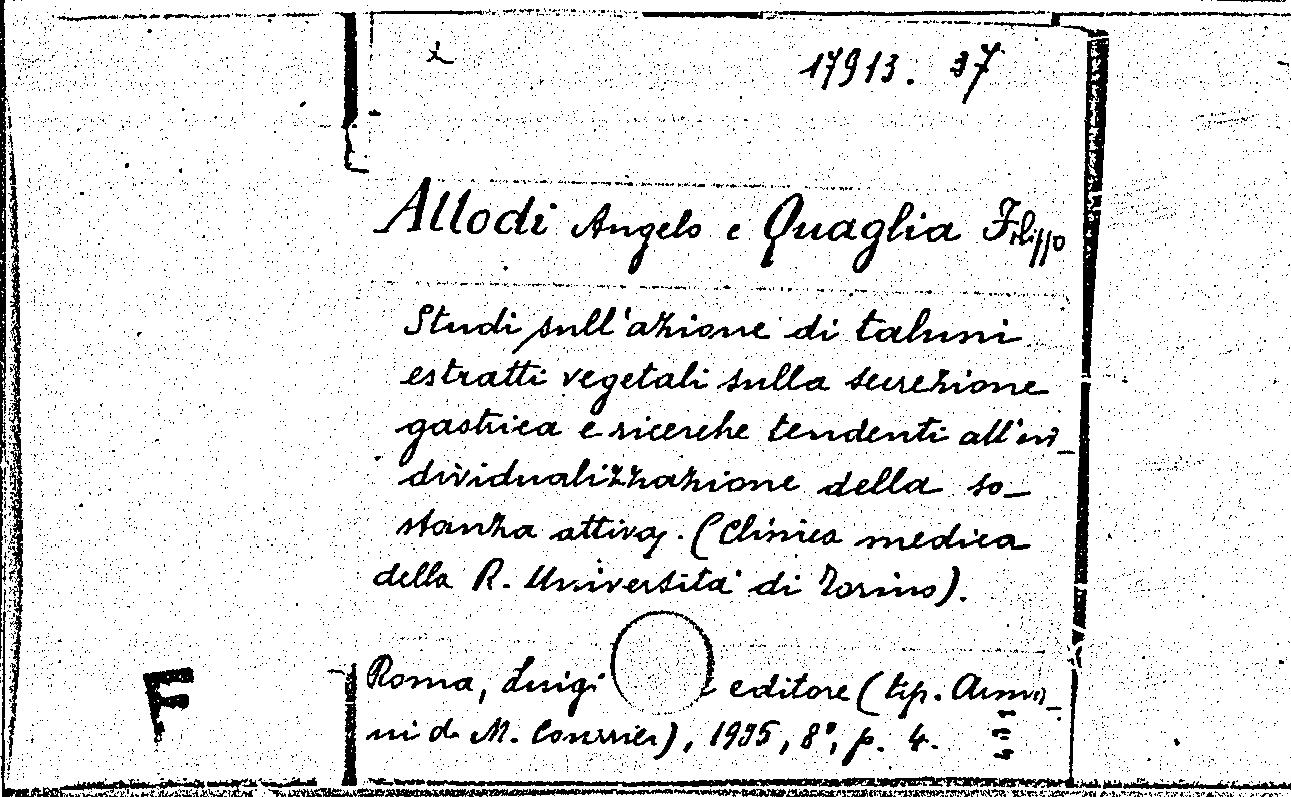 17913. 37
Allodi Angelo e Quaglia Filippo
Studi sull'azione di taluni
estratti vegetali sulla secrezione
gastrica e ricerche tendenti all'in_
dividualizzazione della so_
stanza attiva. (Clinica medica
della R. Università di Torino).
Roma, Luigi editore (tip.
di M. Courrier), 1935, 8°, p. 4.
F